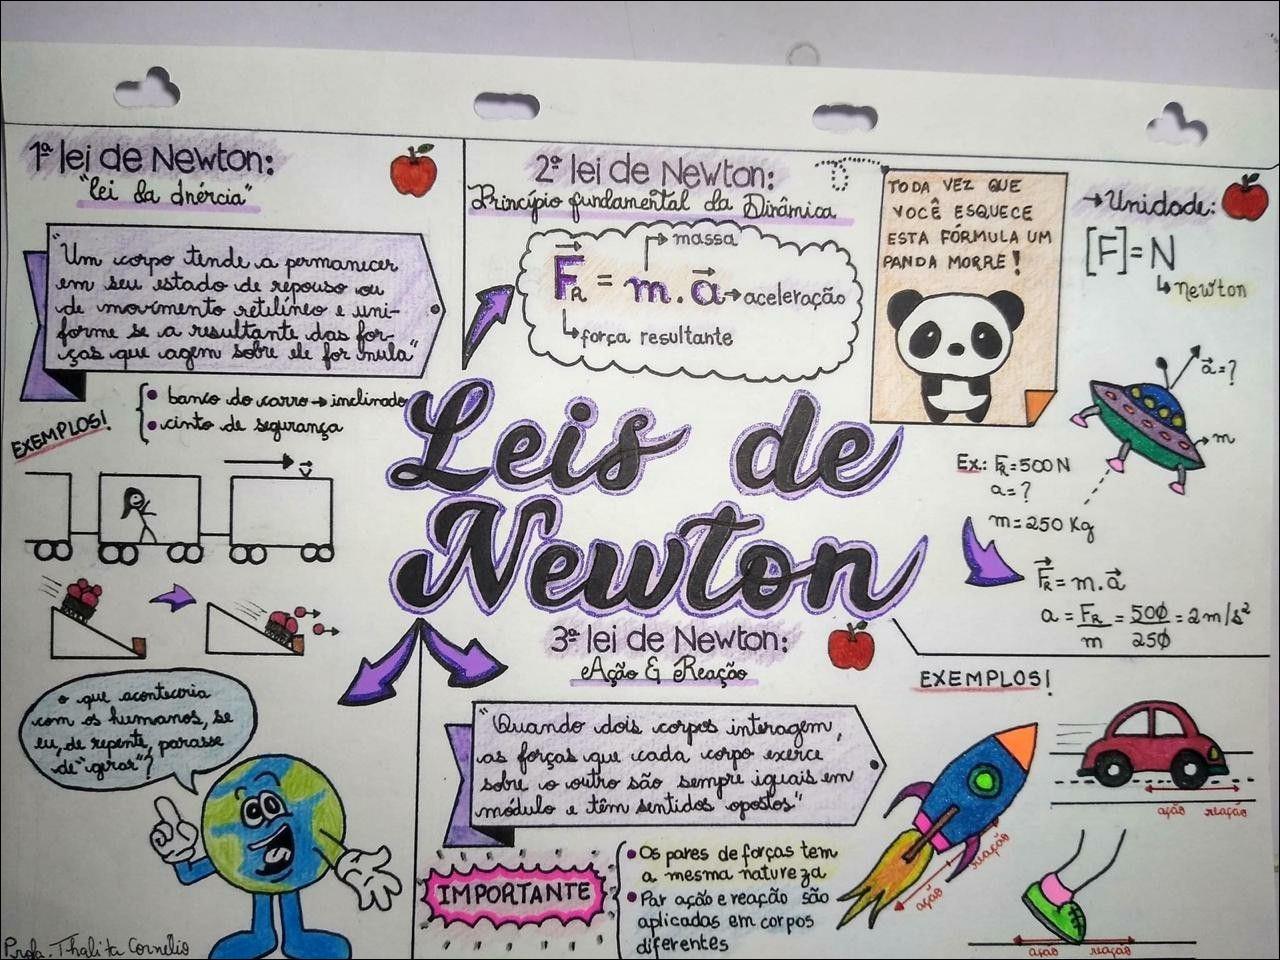 1ª lei de Newton:
"lei da Inércia"
"Um corpo tende a permanecer
em seu estado de repouso ou
de movimento retilíneo e uni-
forme se a resultante das for-
ças que agem sobre ele for nula"
EXEMPLOS!
• banco do carro → inclinado
• cinto de segurança
v
o que aconteceria
com os humanos, se
eu, de repente, parasse
de "girar"?
Profa. Thalita Cornelio
2ª lei de Newton:
Princípio fundamental da Dinâmica
massa
F⃗R = m.a⃗ → aceleração
força resultante
TODA VEZ QUE
VOCÊ ESQUECE
ESTA FÓRMULA UM
PANDA MORRE!
→ Unidade:
[F] = N
newton
a⃗=?
m
Ex.: FR = 500 N
a = ?
m = 250 Kg
F⃗R = m.a⃗
a = FR/m = 500/250 = 2 m/s²
Leis de
Newton
3ª lei de Newton:
Ação & Reação
"Quando dois corpos interagem,
as forças que cada corpo exerce
sobre o outro são sempre iguais em
módulo e têm sentidos opostos"
IMPORTANTE
• Os pares de forças tem
a mesma natureza
• Par ação e reação são
aplicadas em corpos
diferentes
EXEMPLOS!
ação reação
ação reação
ação reação